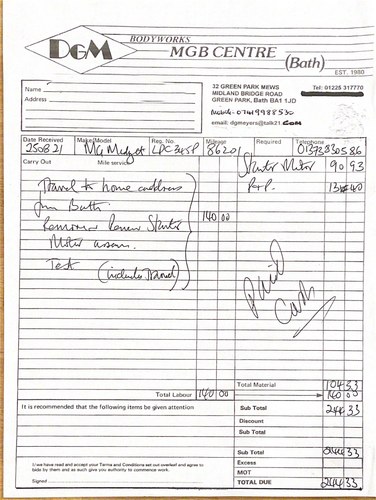 DGM
BODYWORKS
MGB CENTRE
(Bath)
EST. 1980
Name
Address
32 GREEN PARK MEWS
MIDLAND BRIDGE ROAD
GREEN PARK, Bath BA1 1JD
Mobile - 07419988530
email: dgmeyers@talk21.com
Tel: 01225 317770
Date Received Make/Model Reg. No. Mileage Required Telephone
250821 MG Midget 86201 01373830586
Carry Out Mile service
Starter Motor 90 93
P+P. 13 40
Travel to home address
from Bath.
Remove Renew Starter 140 00
Motor
Test (includes travel)
Paid
Cash
Total Material 104 33
Total Labour 140 00 140 00
It is recommended that the following items be given attention
Sub Total 244 33
Discount
Sub Total
Sub Total 244 33
Excess
MOT
TOTAL DUE 244 33
I/we have read and accept your Terms and Conditions set out overleaf and agree to
bide by them and as such give you authority to commence work.
Signed